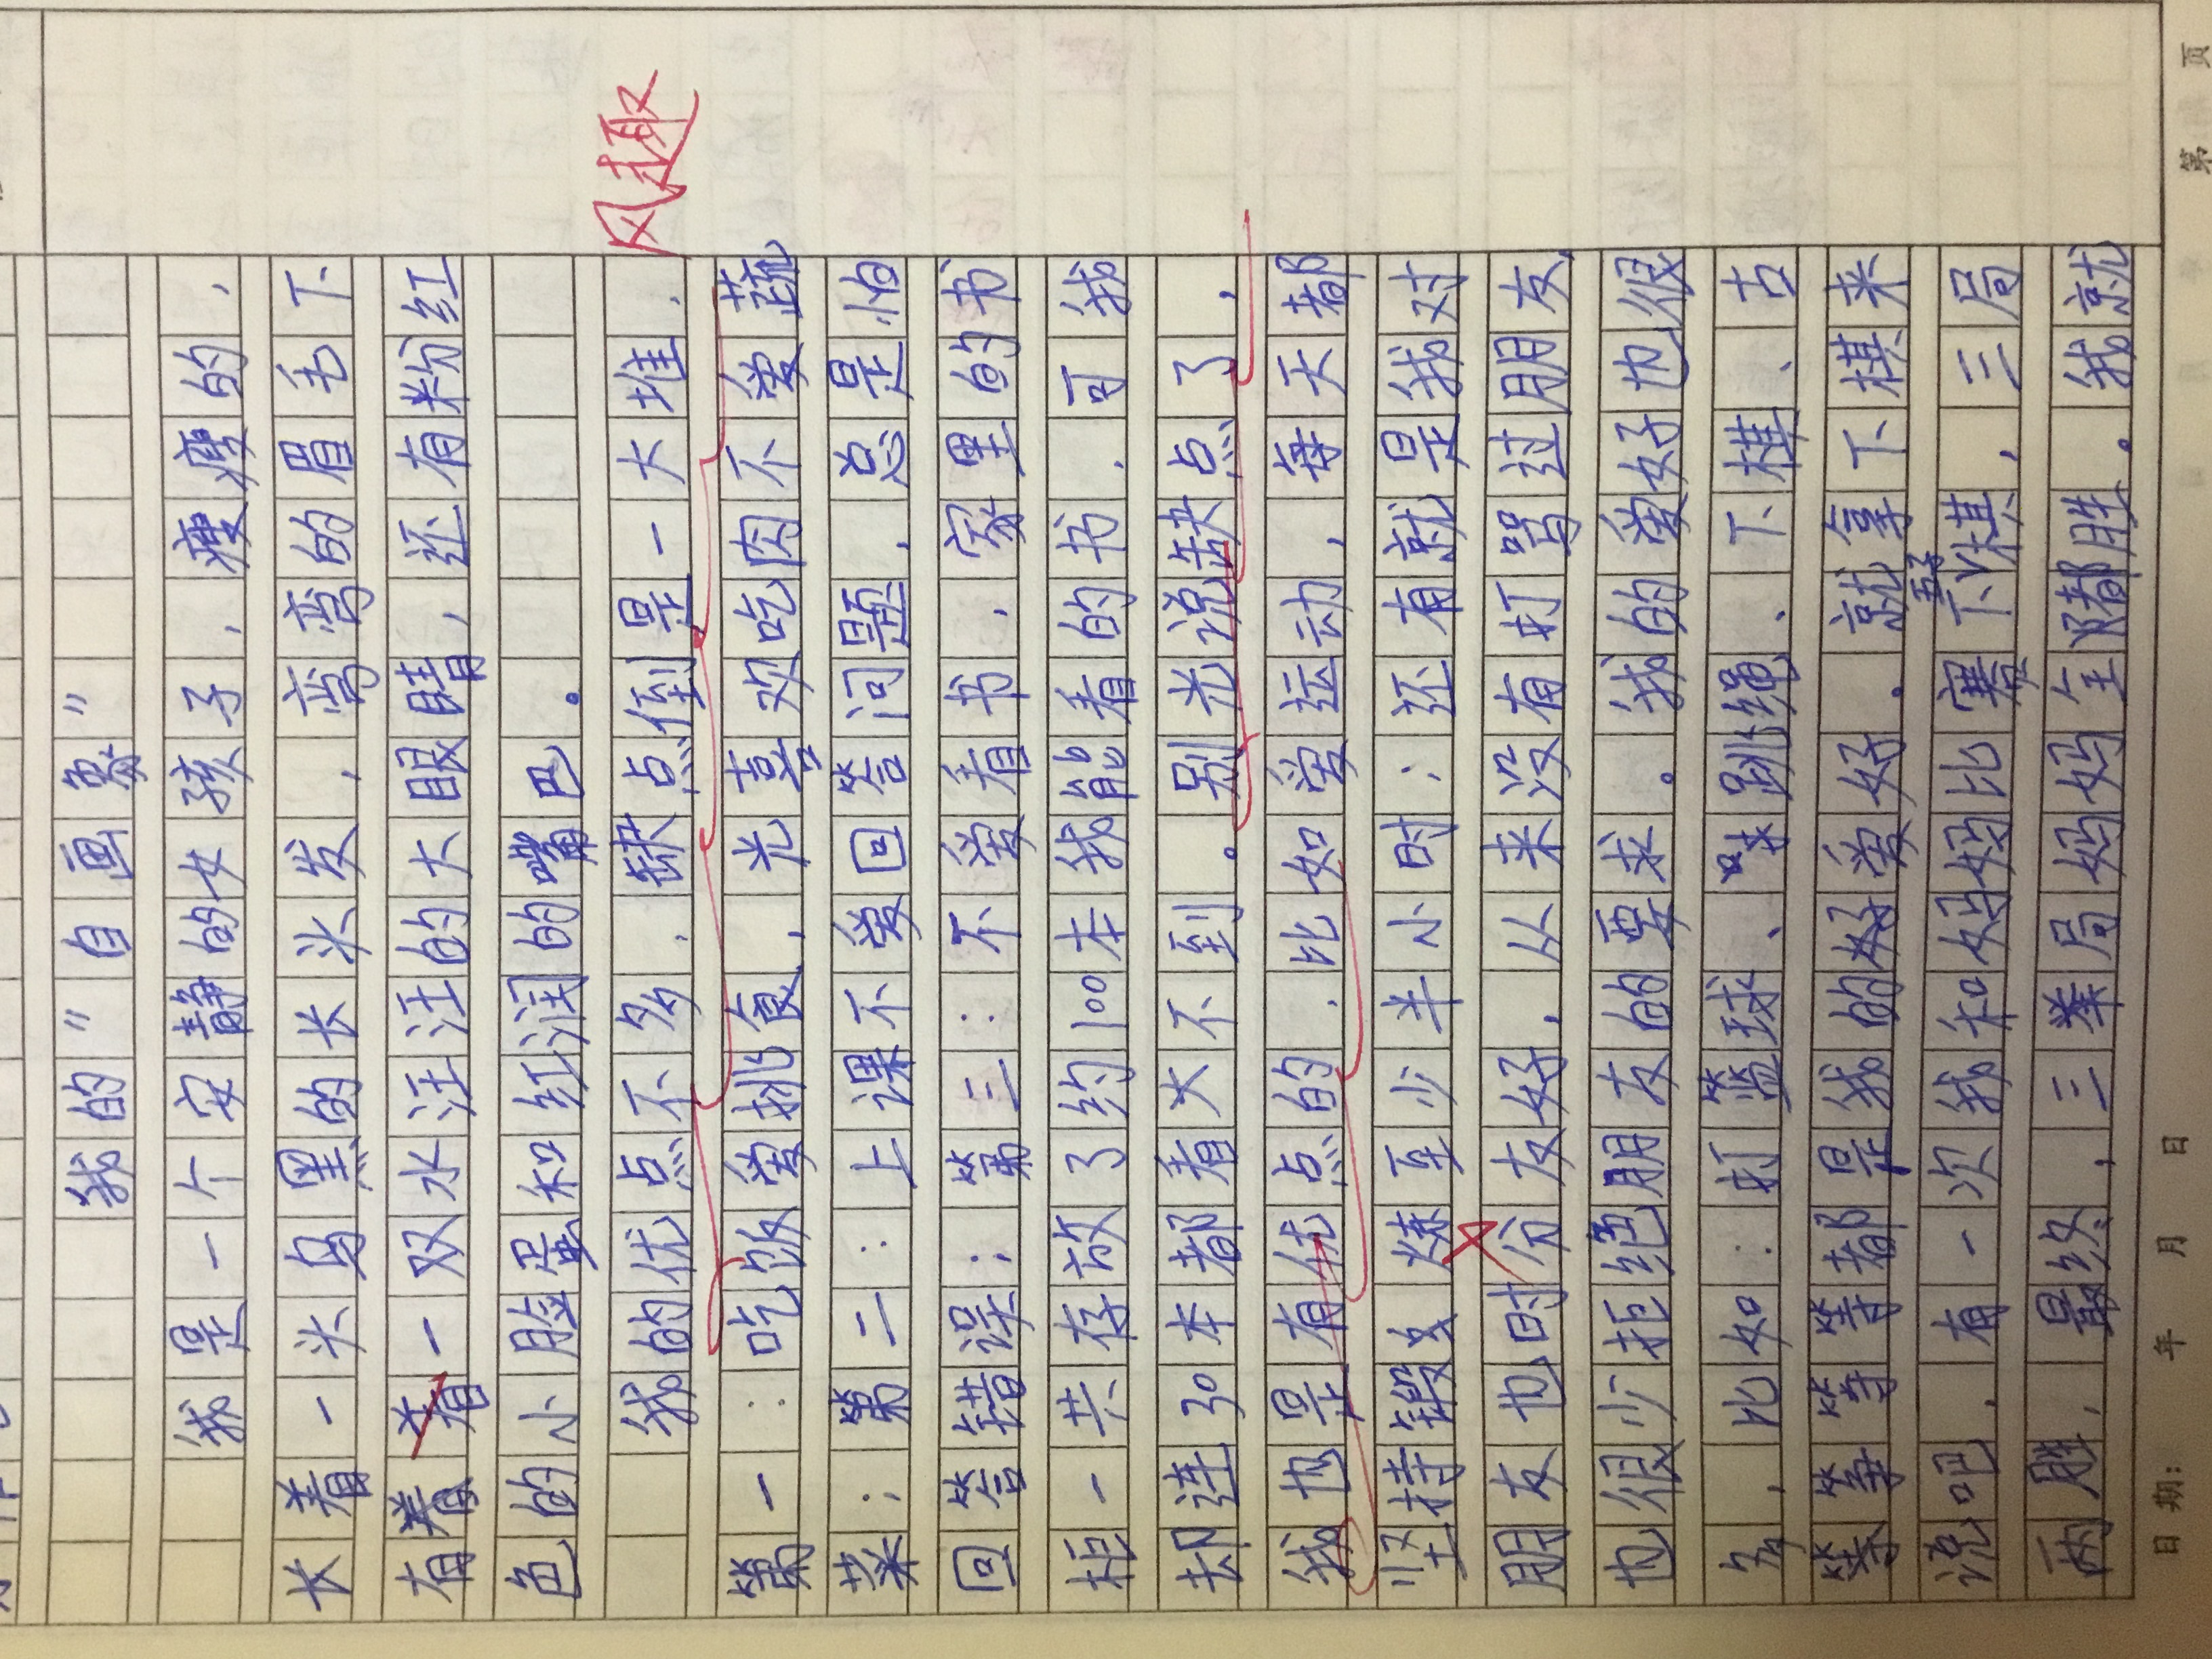 我的"自画象"
我是一个安静的女孩子,瘦瘦的,
长着一头乌黑的长头发,弯弯的眉毛下
有着一双水汪汪的大眼睛,还有粉红
色的小脸蛋和红润的嘴巴。
我的优点不多,缺点倒是一大堆.
风趣
第一:吃饭爱挑食,光喜欢吃肉不爱蔬
菜;第二:上课不爱回答问题,总是怕
回答错误;第三:不爱看书,家里的书
柜一共存放了约100本我能看的书,可我
却连30本都看大不到。别光说缺点了,
我也是有优点的,比如爱运动,每天都
坚持锻炼至少半小时;还有就是我对
朋友也时分友好,从来没有打骂过朋友,
也很少拒绝朋友的要求。我的爱好也很
多,比如:打篮球、跳绳、下棋、古
筝等等都是我的爱好。就拿下棋来
说吧,有一次我和妈妈比赛下棋,三局
两胜,最终,三局妈妈全胜。我就
日期: 年 月 日 第 页